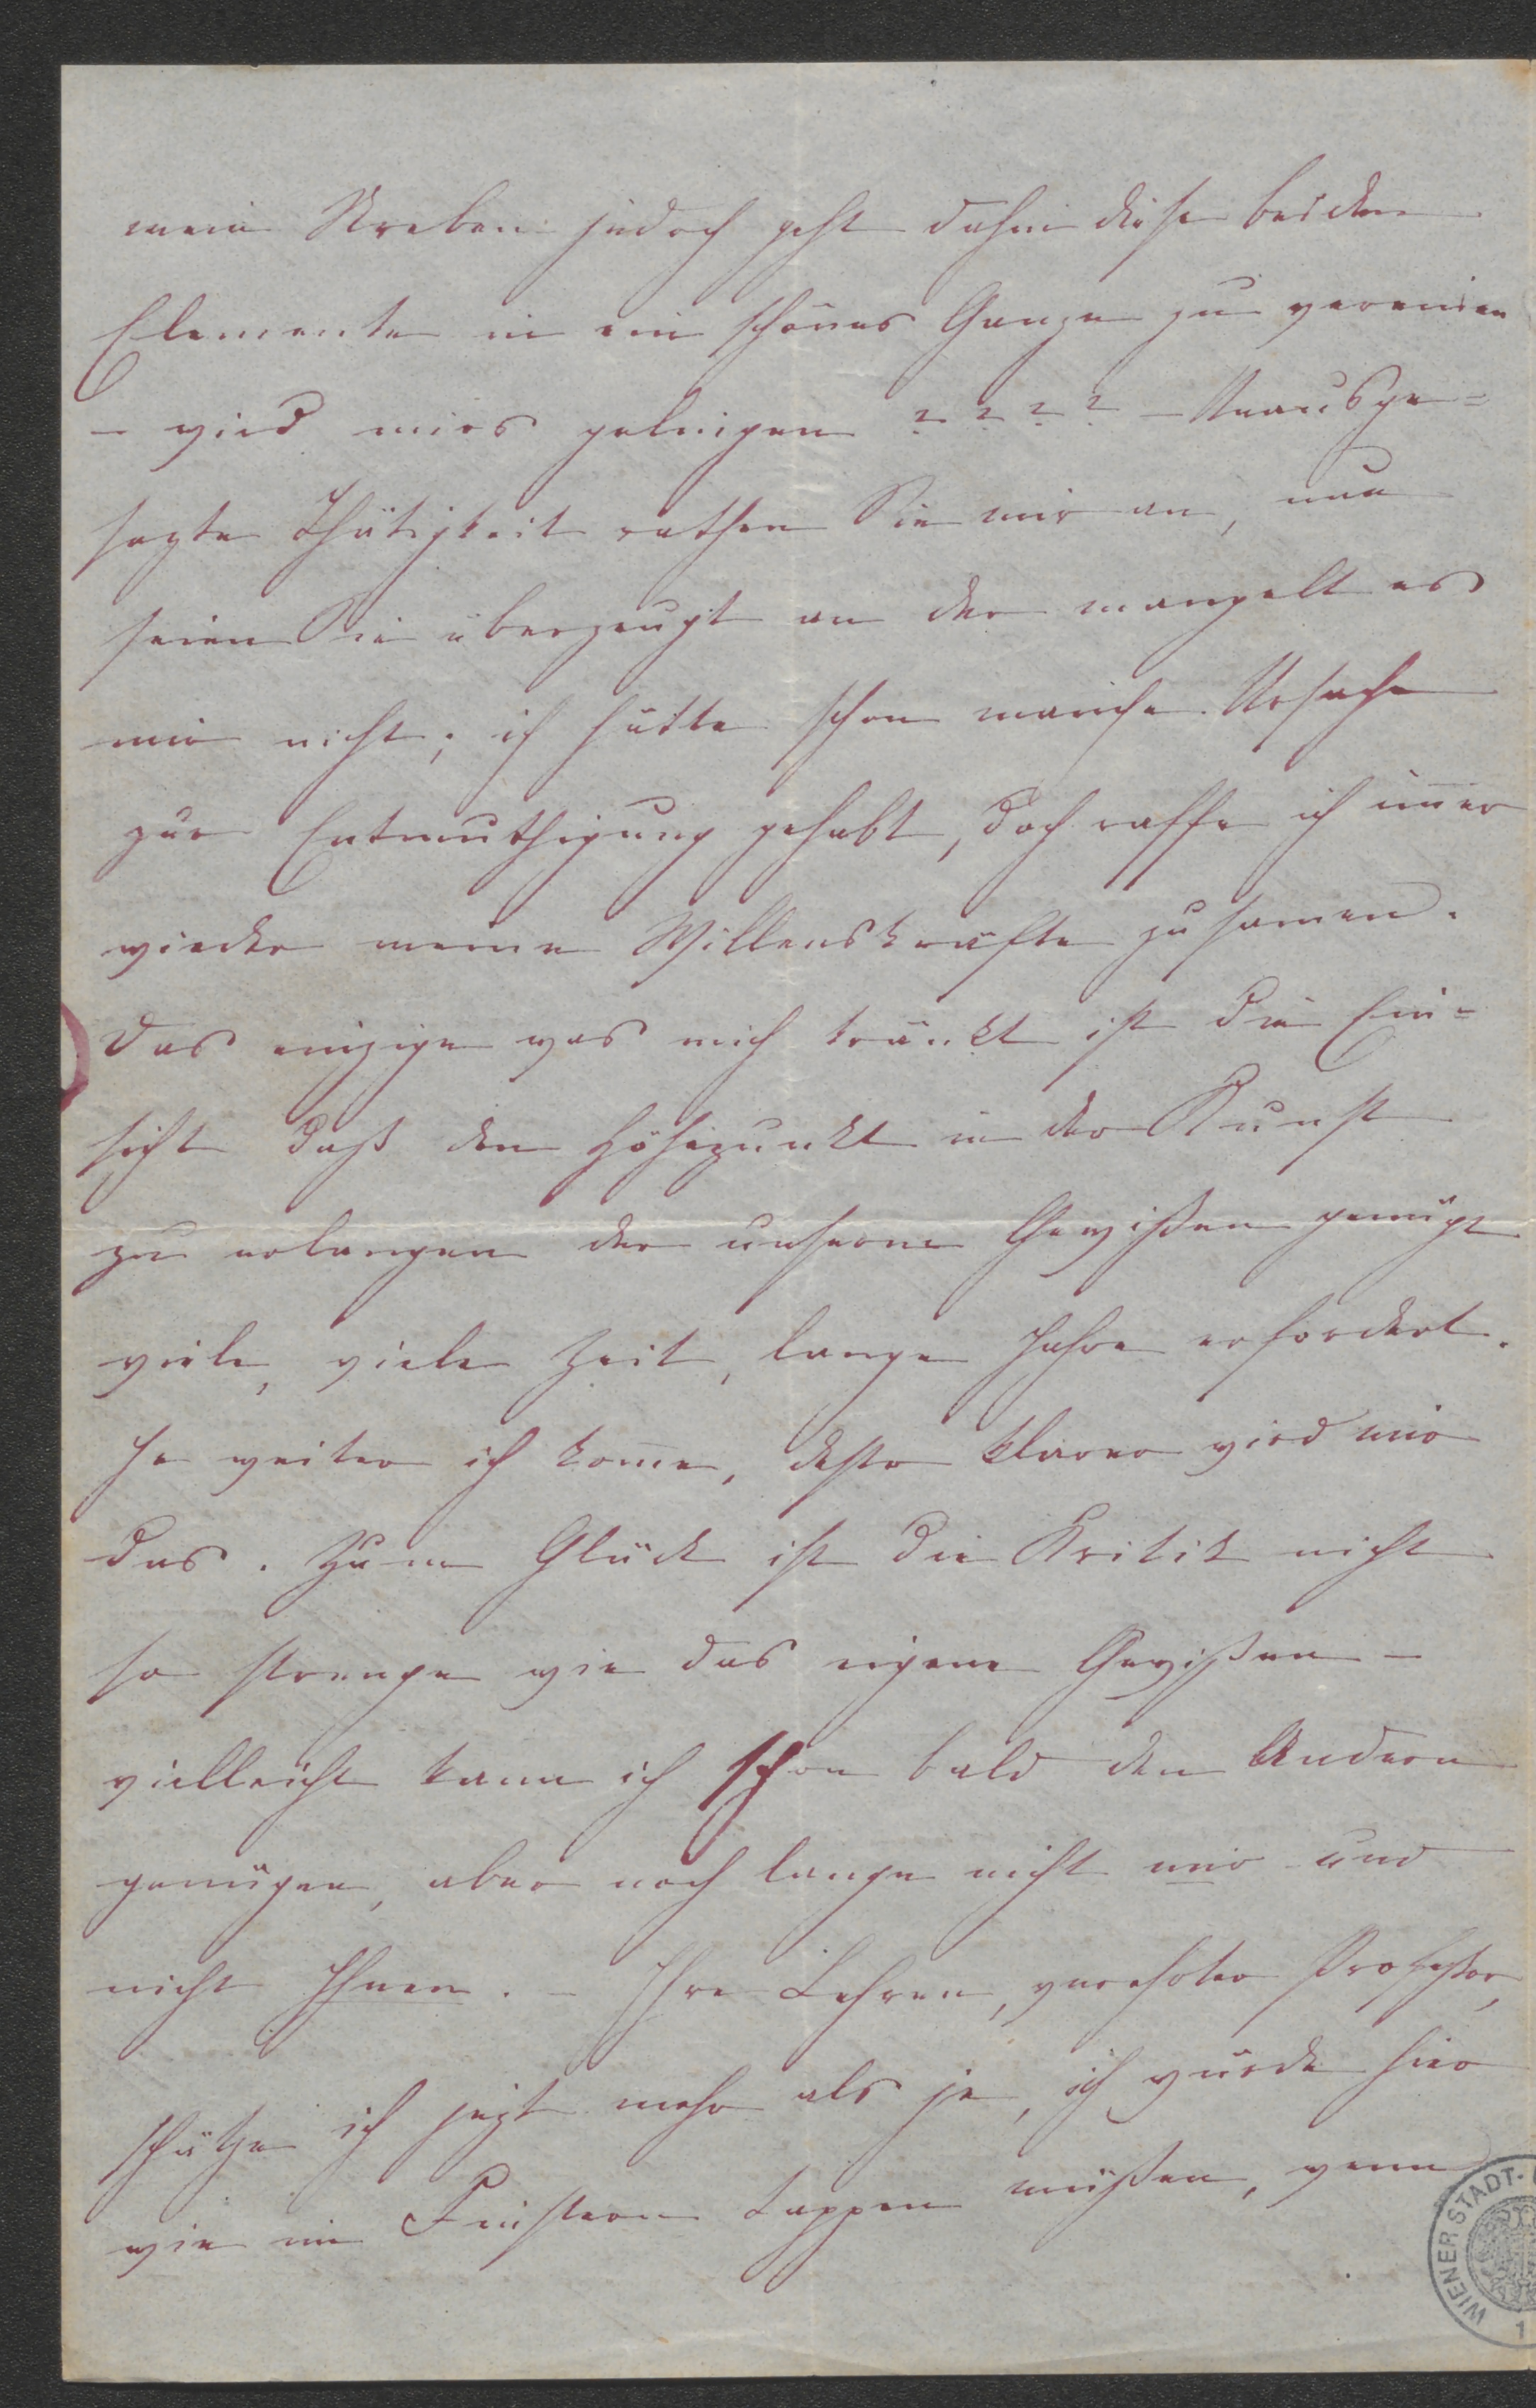 mein Streben jedoch geht dahin diese beiden
Elemente in ein schönes Ganze zu vereinen
– wird mirs gelingen ? ? ? ? – Unausge=
sezte Thätigkeit rathen Sie mir an, nun
seien Sie überzeugt an der mangelt es
mir nicht; ich hätte schon manche Ursache
zur Entmuthigung gehabt, doch raffe ich im̄er
wieder meine Willenskräfte zusamen.
Das einzige was mich kränkt ist die Ein=
sicht daß den Höhepunkt in der Kunst
zu erlangen der unserm Gewißen genügt
viele, viele Zeit, lange Jahre erfordert.
Je weiter ich kom̄e, desto klarer wird mir
das. Zum Glück ist die Kritik nicht
so strenge wie das eigene Gewißen –
vielleicht kann ich schon bald den Andern
genügen, aber noch lange nicht mir und
nicht Ihnen. – Ihre Lehren, verehrter Profeßor,
schätze ich jezt mehr als je, ich würde hier
wie im Finstern tappen müßen, wenn
WIENER STADT-
1